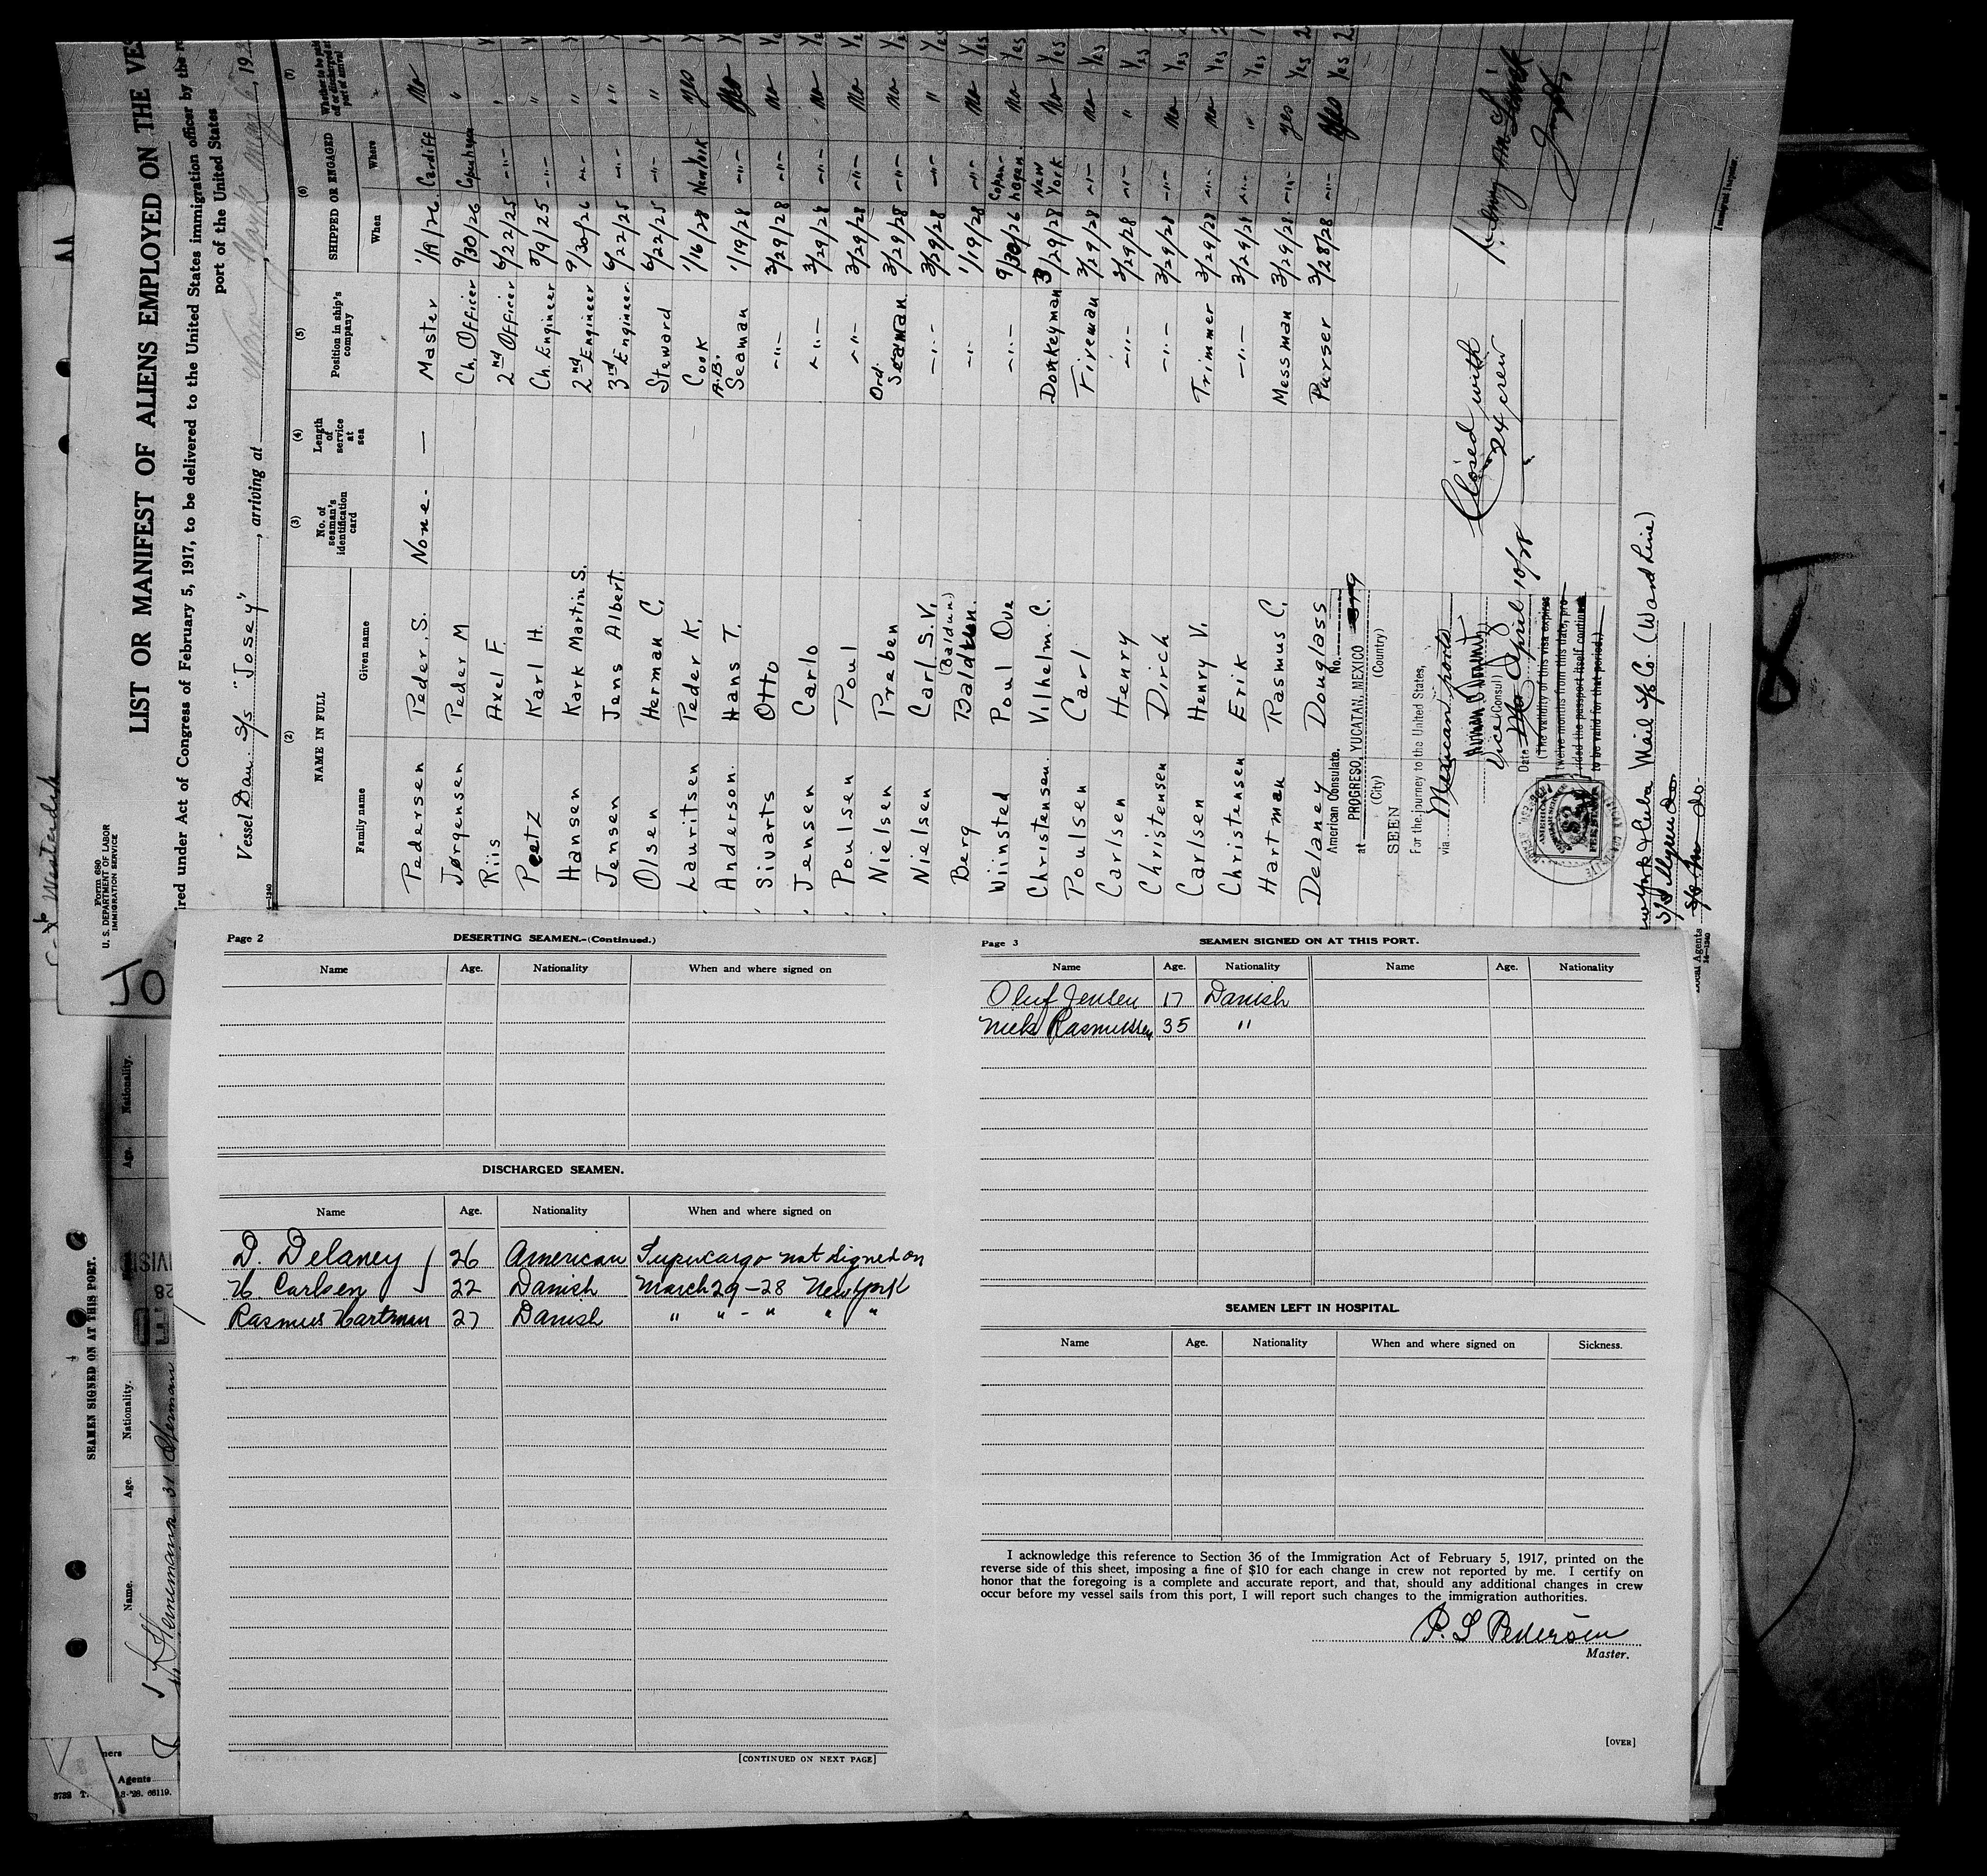 Form 680
U. S. DEPARTMENT OF LABOR
IMMIGRATION SERVICE
LIST OR MANIFEST OF ALIENS EMPLOYED ON THE VES
ired under Act of Congress of February 5, 1917, to be delivered to the United States immigration officer by the
port of the United States
Vessel Dan. S/s "Josey", arriving at
(2) (3) (4) (5) (6) (7)
NAME IN FULL
No. of seaman's identification card
Length of service at sea
Position in ship's company
SHIPPED OR ENGAGED
Family name Given name When Where
Pedersen Peder. S. None. — Master 1/19/26 Cardiff No
Jørgensen Peder M Ch. Officer 9/30/26 Copenhagen "
Riis Axel F. 2nd Officer 6/22/25 -"- "
Peetz Karl H. Ch. Engineer 3/9/25 -"- "
Hansen Kark Martin S. 2nd Engineer 9/30/26 -"- "
Jensen Jens Albert. 3rd Engineer. 6/22/25 -"- "
Olsen Herman C. Steward 6/22/25 -"- "
Lauritsen Peder K. Cook 1/16/28 New York yes
Anderson. Hans T. A.B. Seaman 1/19/28 -"- yes
Sivarts Otto -"- 3/29/28 -"- no
Jensen Carlo -"- 3/29/28 -"- no
Poulsen Poul -"- 3/29/28 -"- no
Nielsen Preben Ord. Seaman 3/29/28 -"- no
Nielsen Carl S.V. -"- 3/29/28 -"- "
Berg (Baldun) -"- 1/19/28 -"- no
Winsted Poul Ove -"- 9/30/26 Copenhagen. no Yes
Christensen. Vilhelm. C. Donkeyman 3/29/28 New York no Yes
Poulsen Carl Fireman 3/29/28 -"- no Yes
Carlsen Henry -"- 3/29/28 -"- " Yes
Christensen Dirch -"- 3/29/28 -"- no Yes
Carlsen Henry V. Trimmer 3/29/28 -"- no Yes
Christensen Erik -"- 3/29/28 -"- " Yes
Hartman Rasmus C. Messman 3/29/28 -"- yes Yes
Delaney Douglass Purser 3/28/28 -"- yes Yes
American Consulate. No.
at PROGRESO, YUCATAN, MEXICO
(City) (Country)
SEEN
For the journey to the United States,
via Mexican ports
Vice (Consul)
Date April 10/28
(The validity of this visa expires
twelve months from this date, pro-
vided the passport itself continues
to be valid for that period.)
Closed with
24 crew
Immigrant Inspector.
Mail S/S Co. (Ward Line)
Local Agents
Page 2 DESERTING SEAMEN.—(Continued.)
Name Age. Nationality When and where signed on
DISCHARGED SEAMEN.
Name Age. Nationality When and where signed on
D. Delaney 26 American Supercargo not signed on
H. Carlsen 22 Danish March 29-28 New York
Rasmus Hartman 27 Danish " " - " " "
[CONTINUED ON NEXT PAGE]
Page 3 SEAMEN SIGNED ON AT THIS PORT.
Name Age. Nationality Name Age. Nationality
Oluf Jensen 17 Danish
Niels Rasmussen 35 "
SEAMEN LEFT IN HOSPITAL.
Name Age. Nationality When and where signed on Sickness.
I acknowledge this reference to Section 36 of the Immigration Act of February 5, 1917, printed on the
reverse side of this sheet, imposing a fine of $10 for each change in crew not reported by me. I certify on
honor that the foregoing is a complete and accurate report, and that, should any additional changes in crew
occur before my vessel sails from this port, I will report such changes to the immigration authorities.
P. S Pedersen
Master.
[OVER]
SEAMEN SIGNED ON AT THIS PORT.
Name. Age. Nationality. Age. Nationality.
31 German
Agents